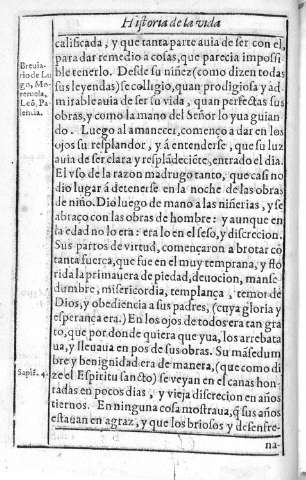 Historia de la vida
calificada, y que tanta parte auia de ser con el,
para dar remedio a cosas, que parecia impossi
ble tenerlo. Desde su niñez (como dizen todas
sus leyendas) se colligio, quan prodigiosa y ad
mirable auia de ser su vida, quan perfectas sus
obras, y como la mano del Señor lo yua guian
do. Luego al amanecer, començo a dar en los
ojos su resplandor, y à entenderse, que su luz
auia de ser clara y respládeciēte, entrado el dia.
El vso de la razon madrugo tanto, que casi no
dio lugar á detenerse en la noche de las obras
de niño. Dio luego de mano a las niñerias, y se
abraço con las obras de hombre: y aunque en
la edad no lo era: era lo en el seso, y discrecion.
Sus partos de virtud, començaron a brotar cō
tanta fuerça, que fue en el muy temprana, y flo
rida la primauera de piedad, deuocion, manse-
dumbre, misericordia, templança, temor de
Dios, y obediencia a sus padres, (cuya gloria y
esperança era.) En los ojos de todos era tan gra
to, que por donde quiera que yua, los arrebata
ua, y lleuaua en pos de sus obras. Su māsedum
bre y benignidad era de manera, (que como di
ze el Espiritu sancto) se veyan en el canas hon-
radas en pocos dias, y vieja discrecion en años
tiernos. En ninguna cosa mostraua, q̃ sus años
estauan en agraz, y que los briosos y desenfre-
na-
Breuia-
rio de Lu
go, Mo-
reruela,
Leō, Pa-
lencia.
Sapiē. 4.